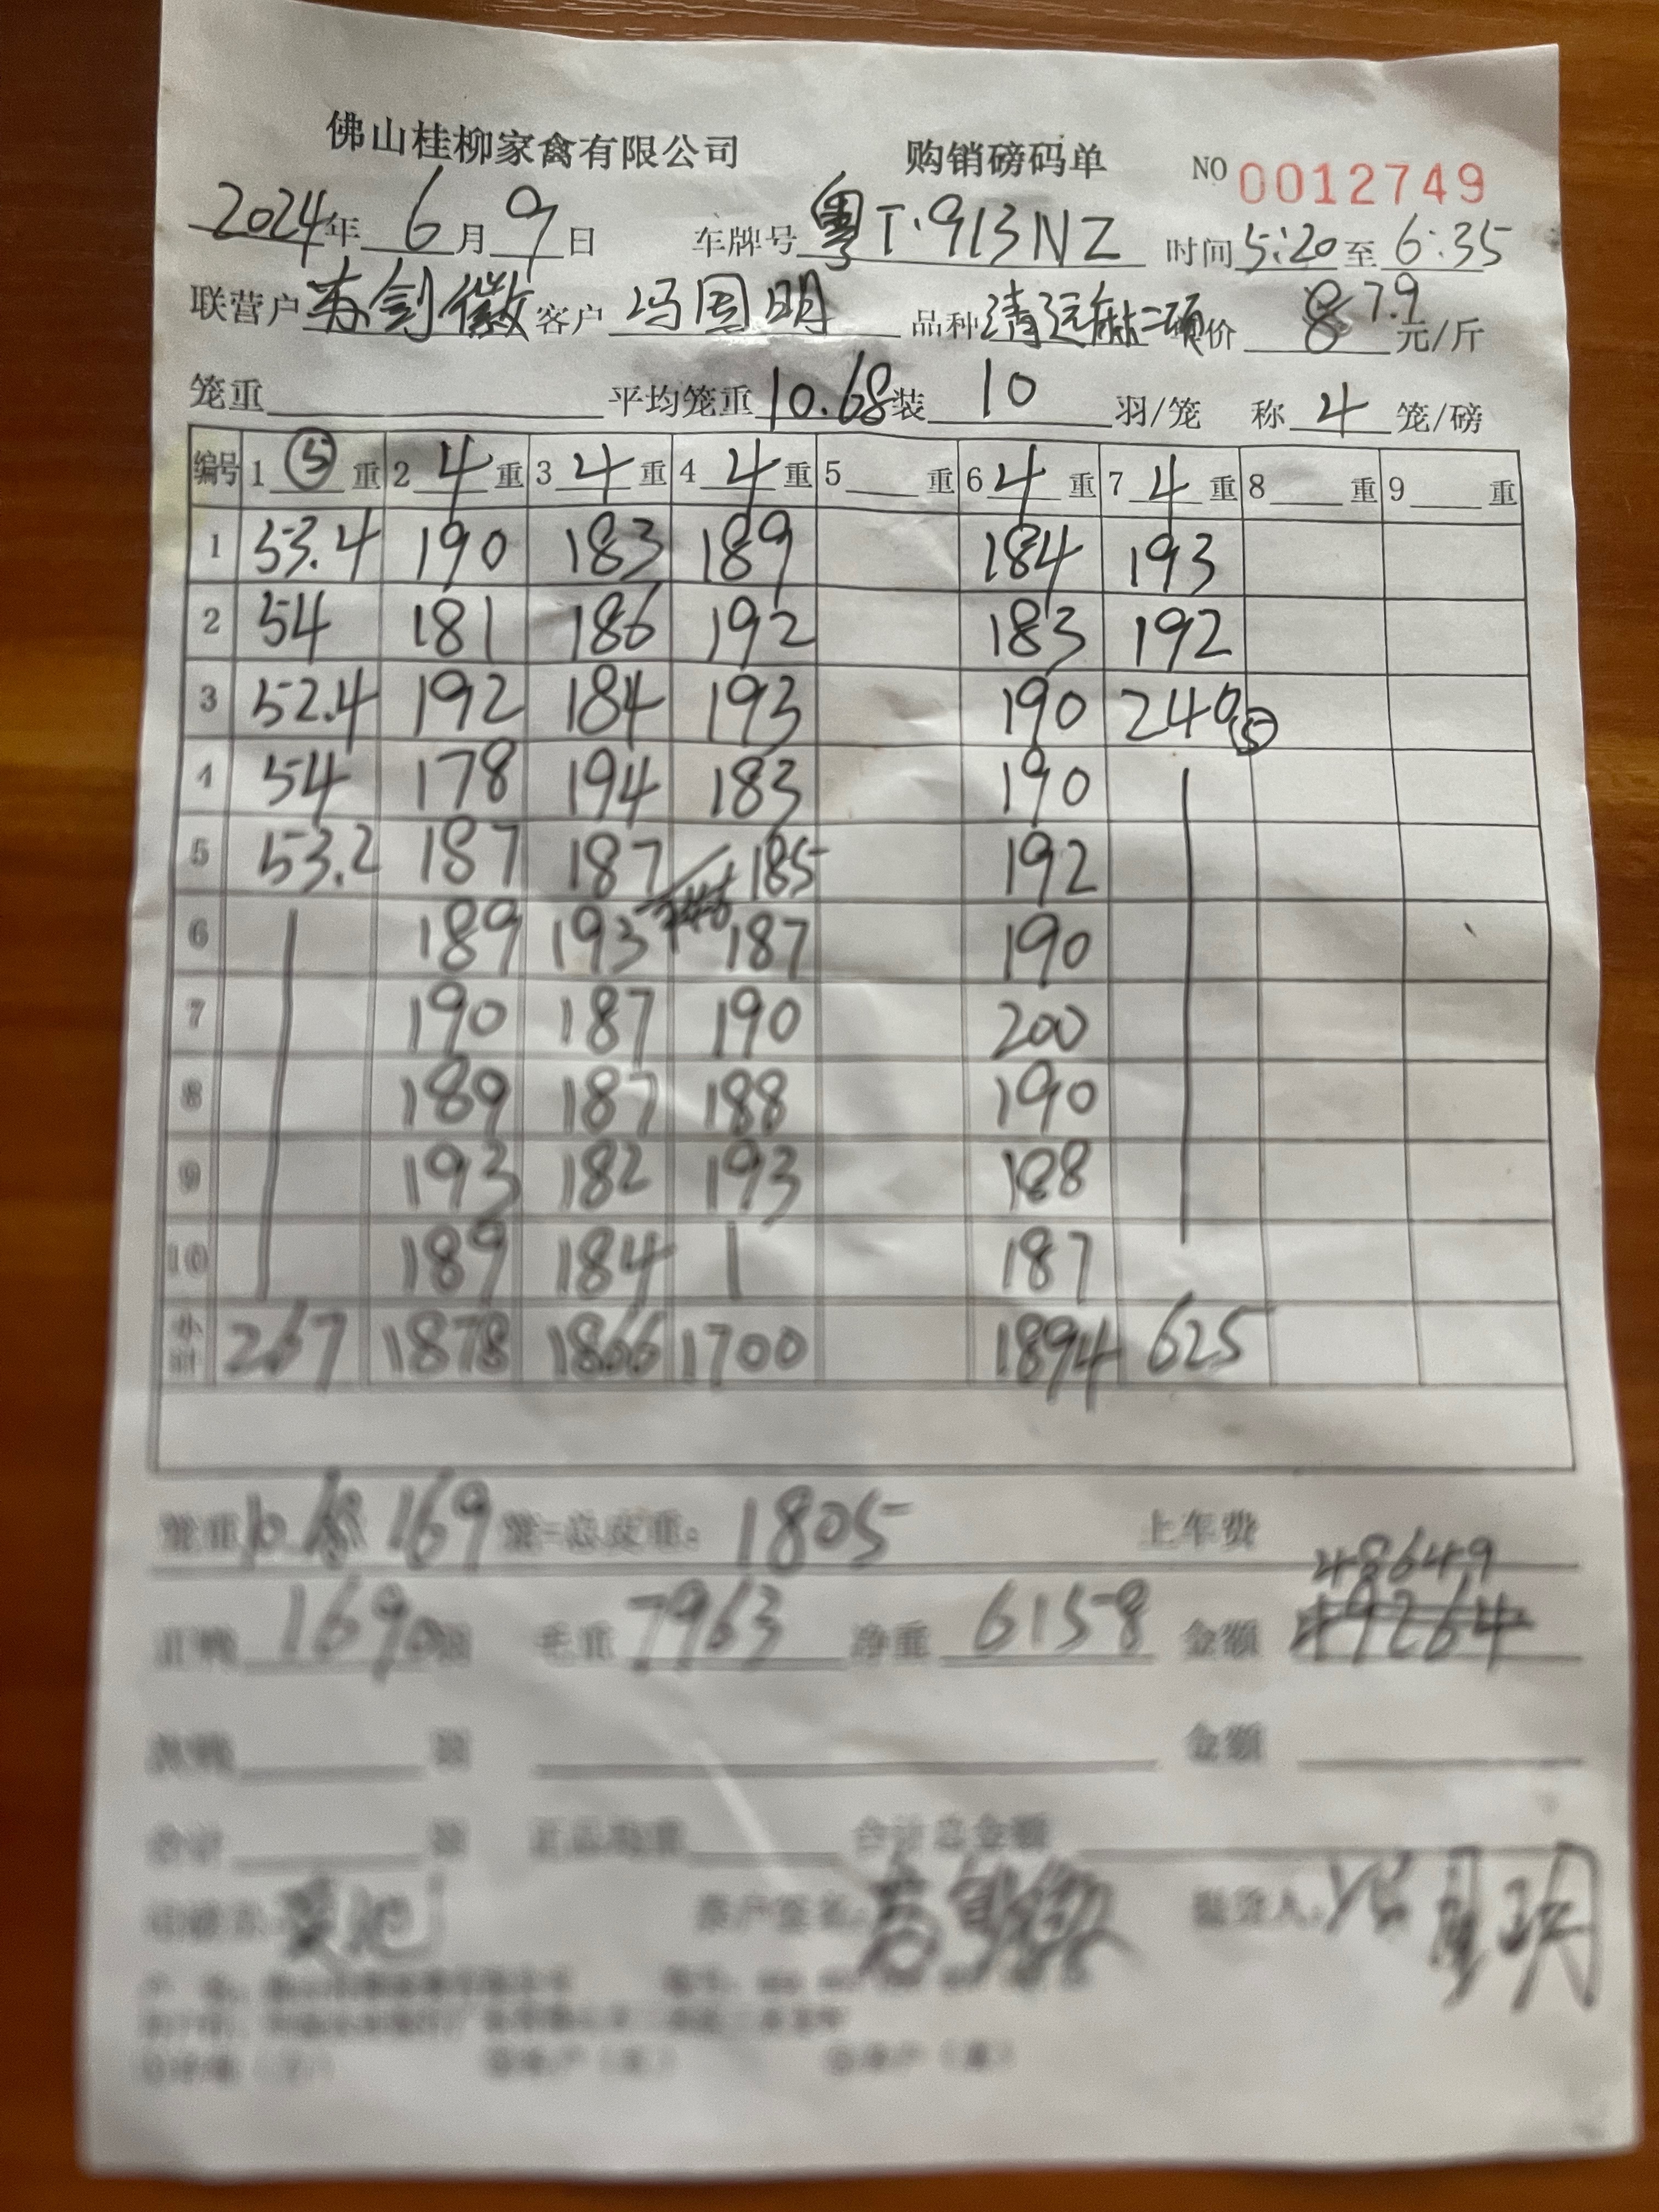 佛山桂柳家禽有限公司 购销磅码单 NO 0012749
2024年 6月 9日 车牌号 粤T·913NZ 时间 5:20 至 6:35
联营户 苏剑徽 客户 冯国明 品种 清远麻二项 单价 8 7.9 元/斤
笼重 平均笼重 10.68 装 10 羽/笼 称 4 笼/磅
编号 1 ⑤ 重 2 4 重 3 4 重 4 4 重 5 重 6 4 重 7 4 重 8 重 9 重
1 53.4 190 183 189 184 193
2 54 181 186 192 183 192
3 52.4 192 184 193 190 240 ⑤
4 54 178 194 183 190
5 53.2 187 187 185 192
6 189 193 187 190
7 190 187 190 200
8 189 187 188 190
9 193 182 193 188
10 189 184 187
小计 267 1878 1866 1700 1894 625
笼重 10.68 169 笼=总皮重: 1805 上车费
48649
正鸡 1690 羽 毛重 7963 净重 6158 金额 49264
羽 金额
合计 羽 正品均重 合计总金额
客户签名: 提货人: